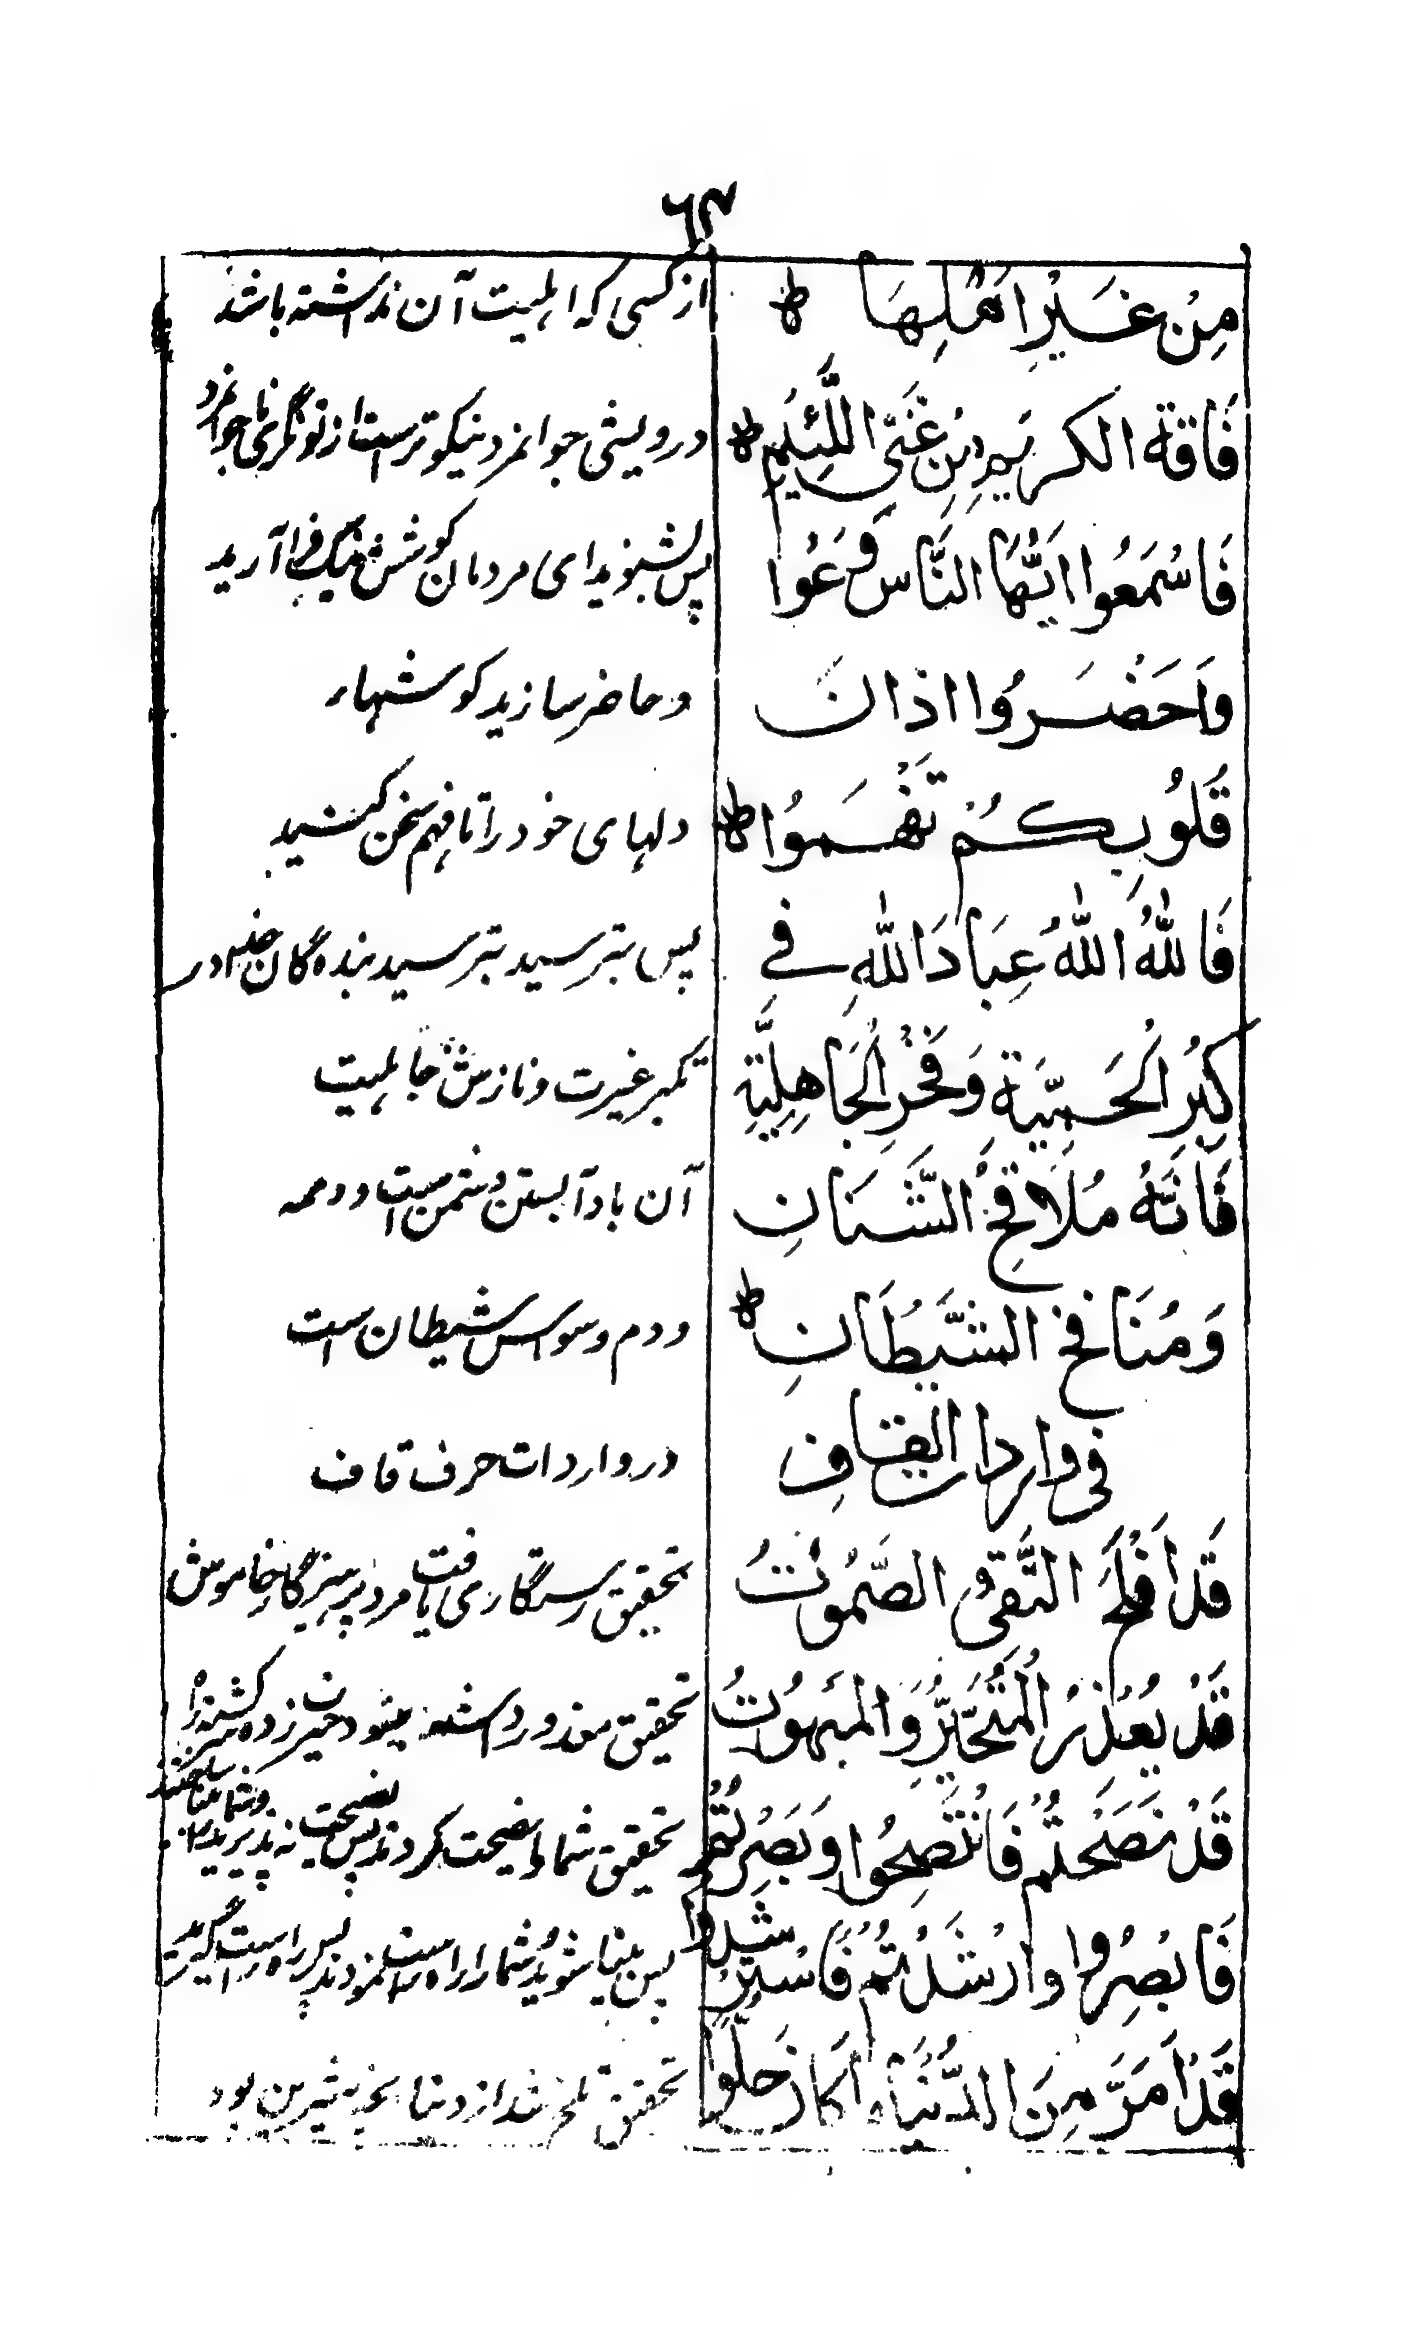 ٦٣
مِنْ غَيْرِ اَهْلِهَا ط از کسی که اہلیت آن نداشتہ باشد
فَاقَةُ الكريمِ مِنْ غَنَى اللَّئِيْمِ ط درویشی جوانمرد نیکوترست از تونگری ناجوانمرد
فَاسْمَعُوا اَيُّهَا النَّاسُ وَعُوا پس بشنوید ای مردمان گوش نیک فرا آرید
وَاَحْضِرُوا اذانَ وحاضر سازید گوشہاء
قُلُوبِكُمْ تَفْهَمُوا ط دلہای خود را تا فہم سخن کنید
فَاللهُ اللهُ عِبَادَ اللهِ فے پس بترسید بترسید بندہ گان خدا در
كِبْرِ الْحَمِيَّةِ وَفَخْرِ الْجَاهِلِيَّةِ تکبر غیرت ونازش جاہلیت
فَاِنَّهُ مُلَاقِحُ الشَّنَانِ آن باد آبستن دشمن است ودمہ
وَمُنَافِخُ الشَّيْطَانِ ط ودم وسواس شیطان است
فى واردات القافِ در واردات حرف قاف
قَدْ اَفْلَحَ التَّقِىُّ الصَّمُوْتُ تحقیق رستگاری یافت مرد پرہیزگار خاموش
قَدْ يُعْذَرُ الْمُتَحَيِّرُ وَالمَبْهُوْتُ تحقیق معذور داشتہ میشود حیرت زدہ سرگشتہ
قَدْ نُصِحْتُمْ فَانْتَصِحُوا وَبُصِّرْتُمْ تحقیق شما را نصیحت کردند پس نصیحت پذیرید
فَابْصِرُوا وَاُرْشِدْتُمْ فَاسْتَرْشِدُوا پس بینا شوید شما را راہ راست نمودند پس راہ راست گیرید
قَدْ اَمَرَّ مِنَ الدُّنْيَا مَا كَانَ حَلْوًا تحقیق تلخ شد از دنیا آنچہ شیرین بود